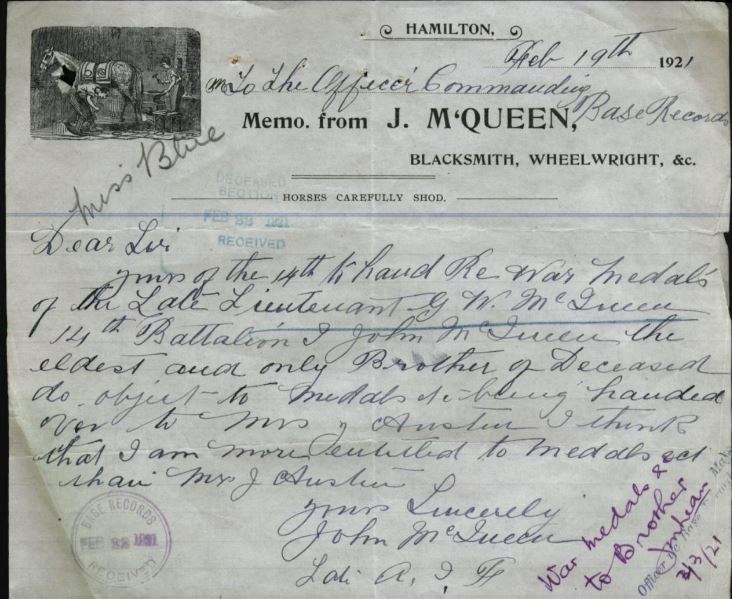 HAMILTON,
Feb 19th 1921
To The Officer Commanding
Base Records
Memo. from J. McQUEEN,
BLACKSMITH, WHEELWRIGHT, &c.
HORSES CAREFULLY SHOD.
Miss Blue
DECEASED
SECTION
FEB 23 1921
RECEIVED
Dear Sir
yours of the 14th to hand Re War Medals
of the Late Lieutenant G W. McQueen
14th Battalion I John McQueen the
eldest and only Brother of Deceased
do object to Medals etc being handed
over to Mrs J Austin I think
that I am more entitled to Medals ect
than Mrs J Austin
yours Sincerely
John McQueen
Late A. I F
BASE RECORDS
FEB 23 1921
RECEIVED
War medals &c
to Brother
3/3/21
Officer i/c Base Records